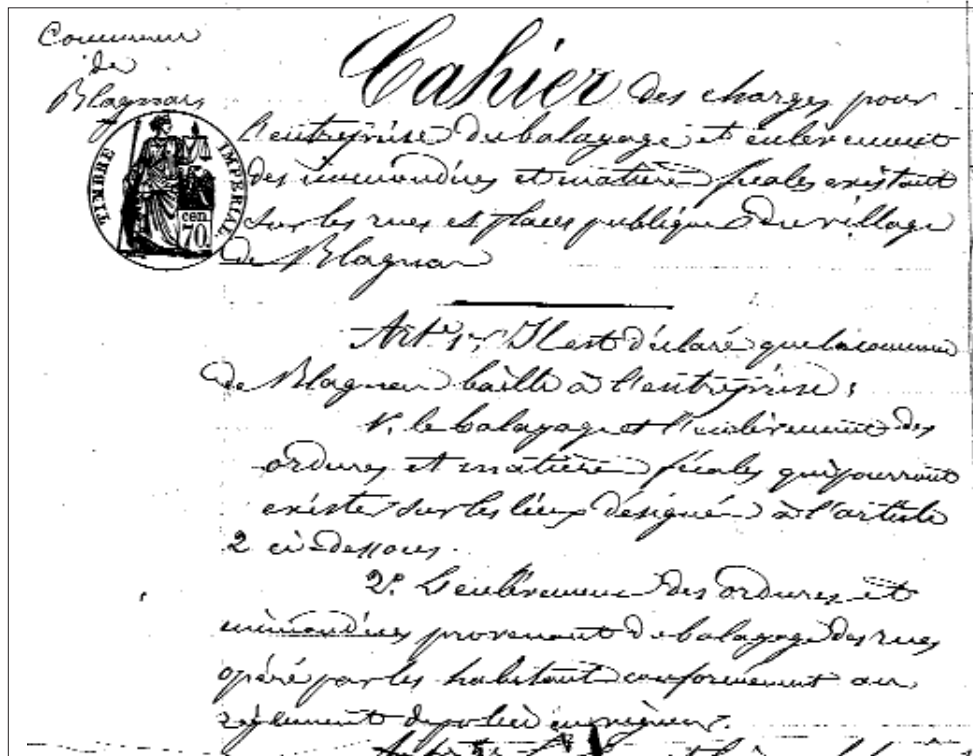 Commune
de
Blagnac
TIMBRE IMPERIAL
cen.
70
Cahier des charges pour
l'entreprise du balayage et enlèvement
des immondices et matières fécales existant
sur les rues et places publiques du village
de Blagnac
Art 1er Il est déclaré que la commune
de Blagnac baille à l'entreprise:
1º. le balayage et l'enlèvement des
ordures et matières fécales qui pourront
exister sur les lieux désignés à l'article
2 ci-dessous.
2º. L'enlèvement des ordures et
immondices provenant du balayage des rues
opéré par les habitants conformément aux
règlements de police en vigueur.